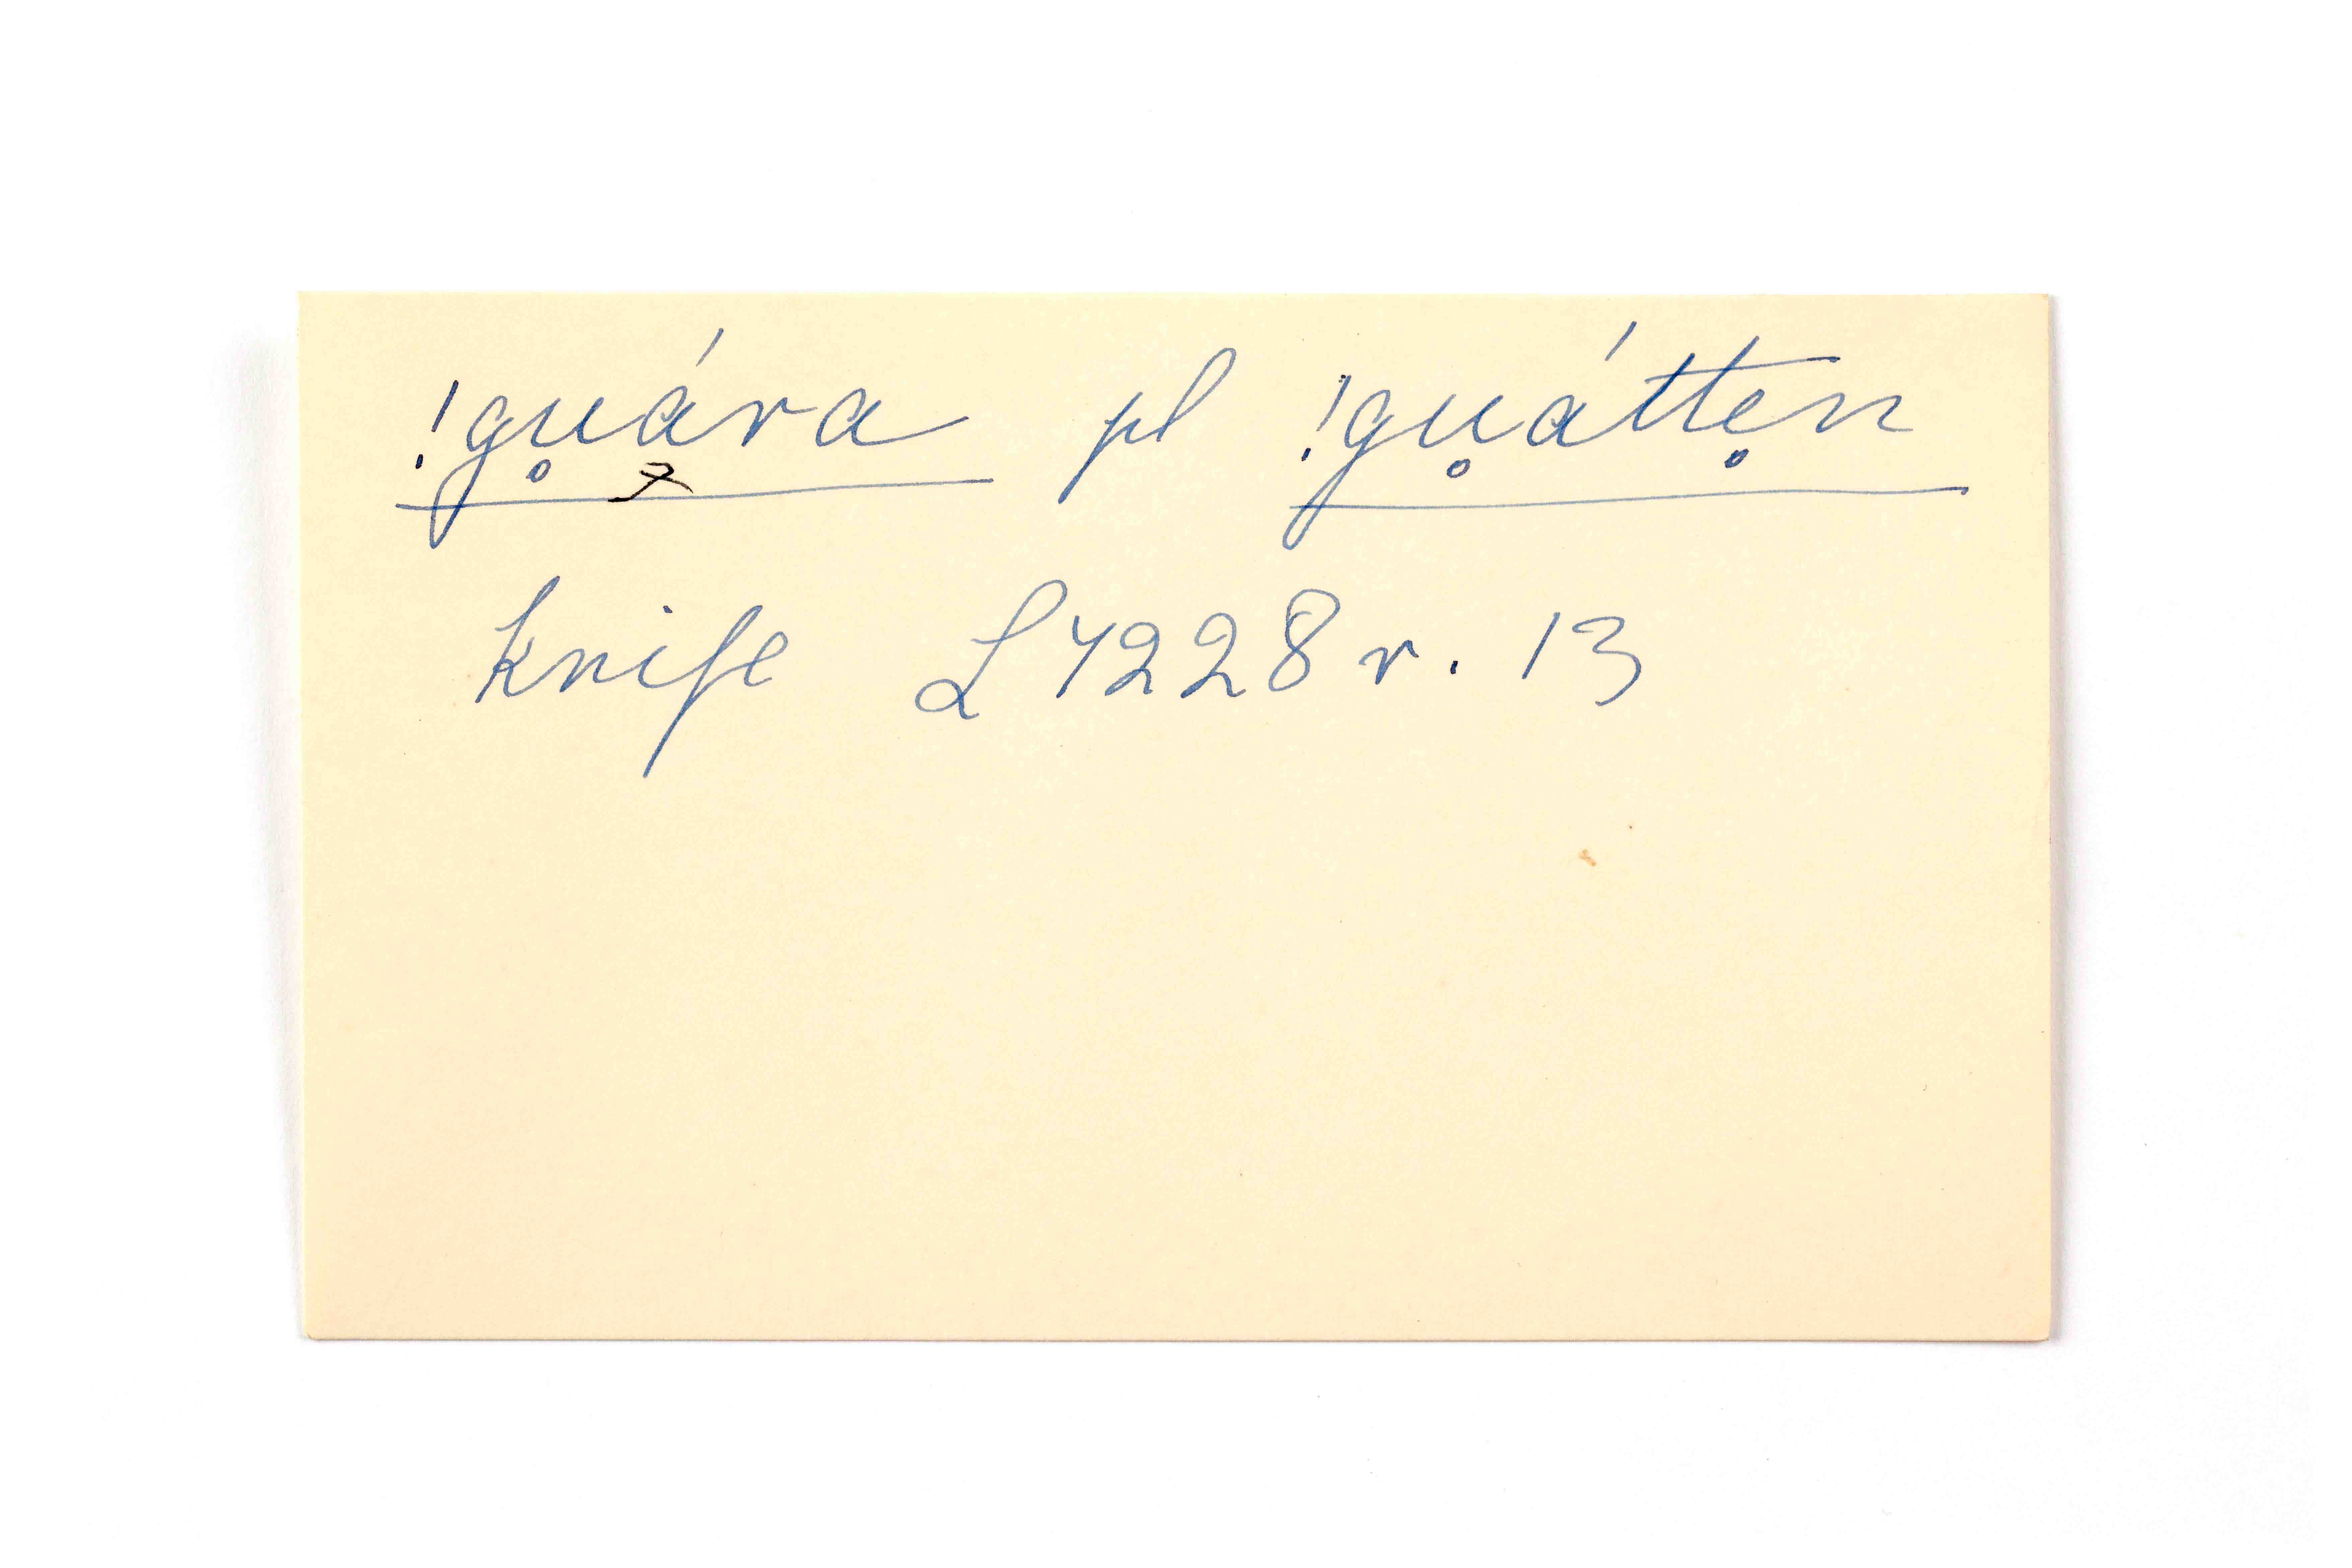 !gu̥ára pl !gu̥átte̥n
knife L4228r. 13